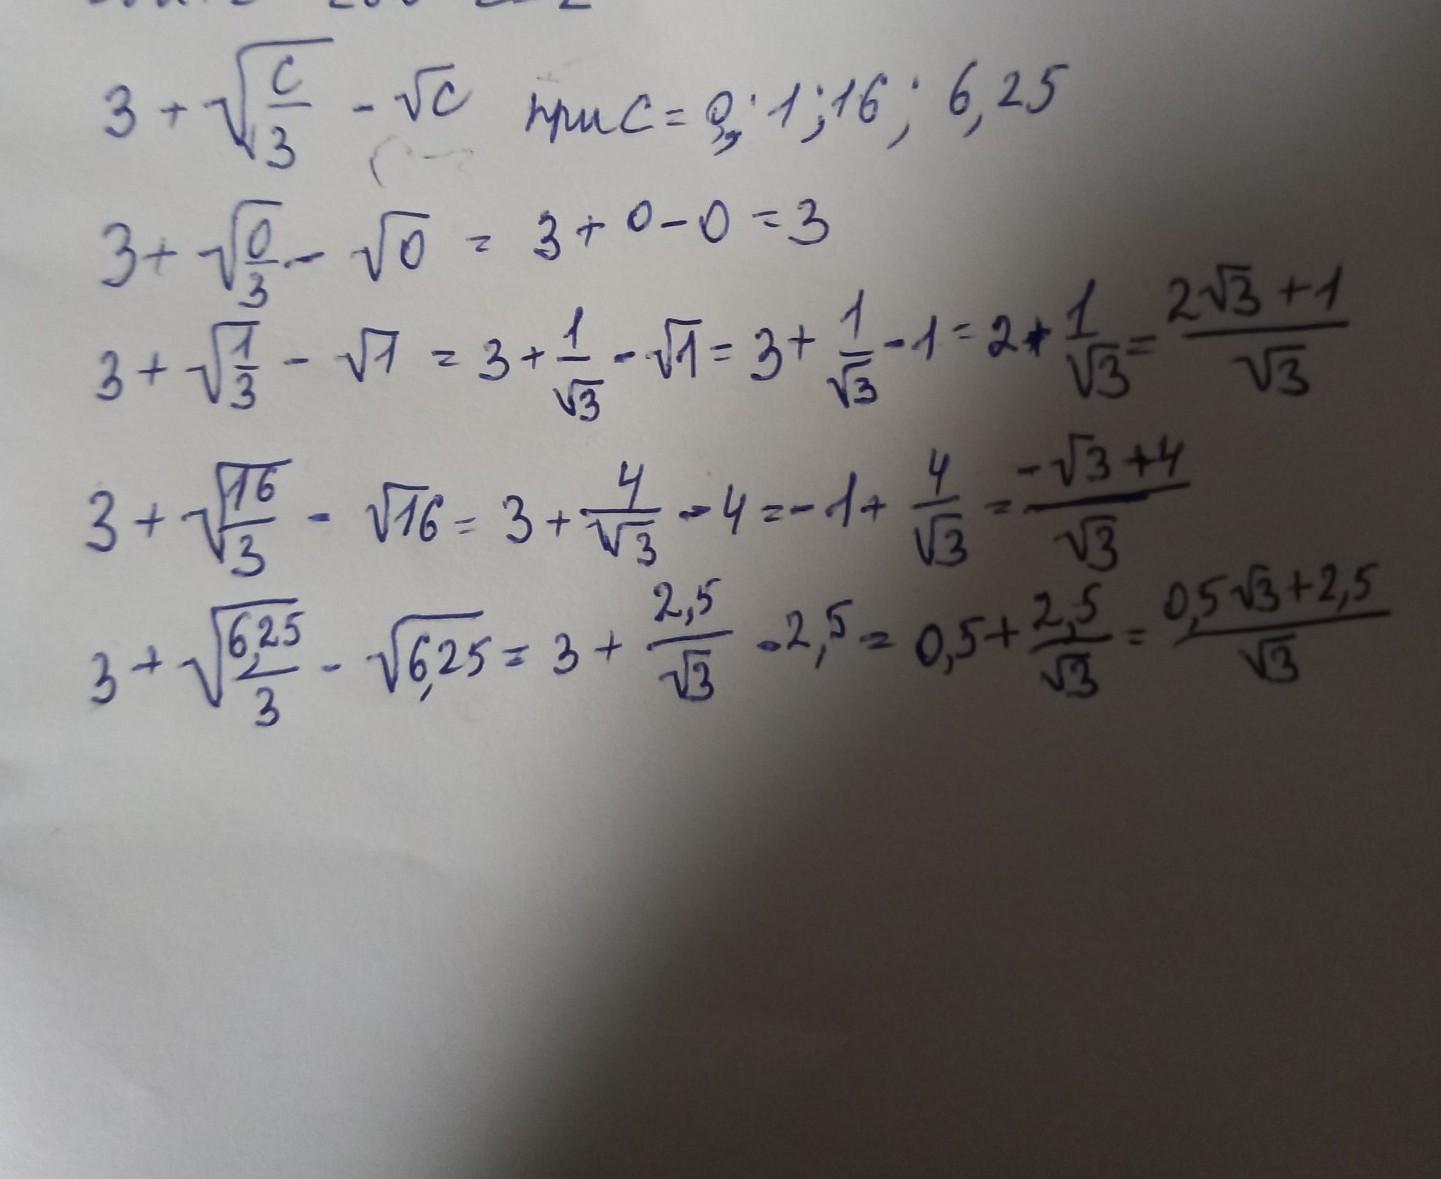 3 + √(c/3) - √c при c = 0; 1; 16; 6,25
3 + √(0/3) - √0 = 3 + 0 - 0 = 3
3 + √(1/3) - √1 = 3 + 1/√3 - √1 = 3 + 1/√3 - 1 = 2 + 1/√3 = (2√3 + 1)/√3
3 + √(16/3) - √16 = 3 + 4/√3 - 4 = -1 + 4/√3 = (-√3 + 4)/√3
3 + √(6,25/3) - √6,25 = 3 + 2,5/√3 - 2,5 = 0,5 + 2,5/√3 = (0,5√3 + 2,5)/√3